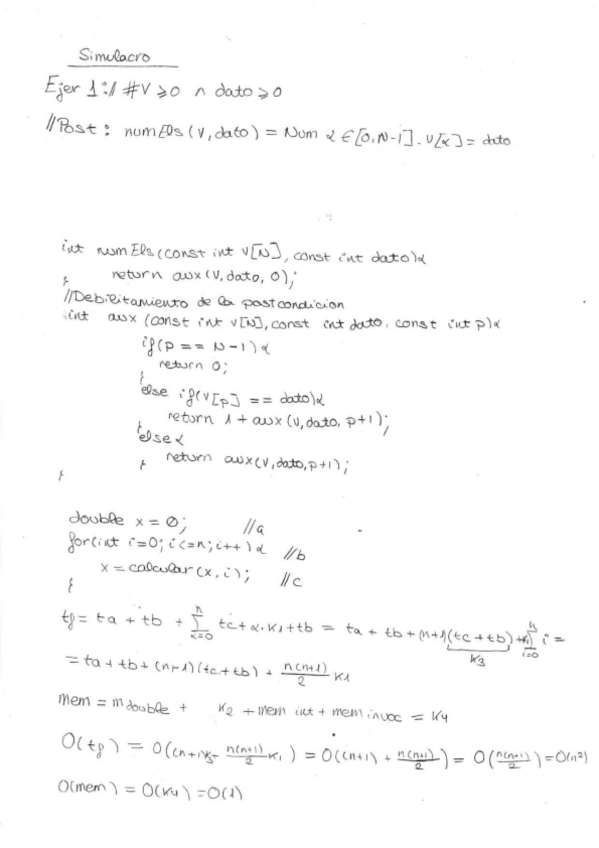 Simulacro
Ejer 1:// #V ≥ 0 ∧ dato ≥ 0
//Post: numEls(V,dato) = Num α ∈ [0,N-1]. V[α] = dato
int numEls(const int V[N], const int dato){
return aux(V, dato, 0);
}
//Debilitamiento de la postcondicion
int aux (const int V[N], const int dato, const int p){
if(p == N-1){
return 0;
}
else if(V[p] == dato){
return 1 + aux(V, dato, p+1);
}
else{
return aux(V,dato,p+1);
}
}
double x = 0; //a
for(int i=0; i<=n; i++){ //b
x = calcular(x, i); //c
}
tf = ta + tb + Σ(i=0..n) tc + α·K1 + tb = ta + tb + (n+1)(tc+tb) + K1 Σ(i=0..n) i =
K3
= ta + tb + (n+1)(tc+tb) + n(n+1)/2 K1
mem = m double + K2 + mem int + mem invoc = K4
O(tf) = O((n+1)K3 + n(n+1)/2 K1) = O((n+1) + n(n+1)/2) = O(n(n+1)/2) = O(n²)
O(mem) = O(K4) = O(1)